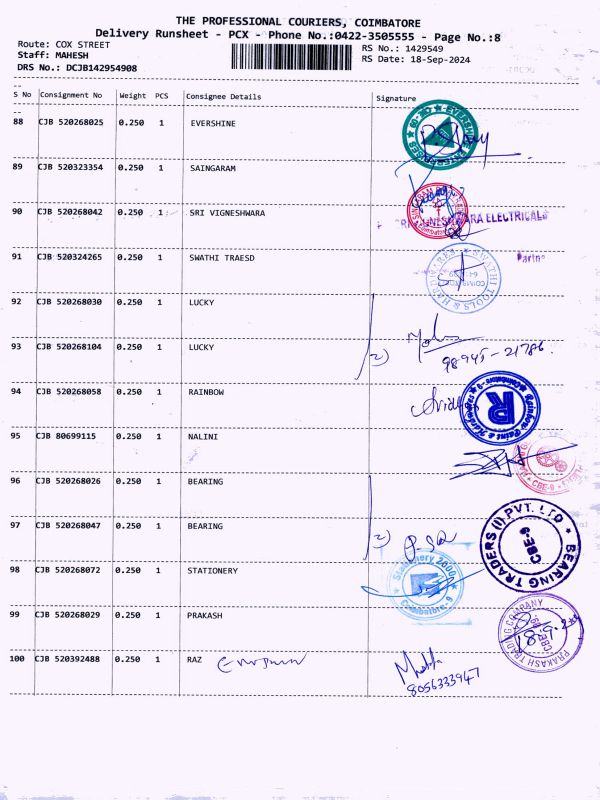 THE PROFESSIONAL COURIERS, COIMBATORE
Delivery Runsheet - PCX - Phone No.:0422-3505555 - Page No.:8
Route: COX STREET
RS No.: 1429549
Staff: MAHESH
RS Date: 18-Sep-2024
DRS No.: DCJB142954908
S No Consignment No Weight PCS Consignee Details Signature
88 CJB 520268025 0.250 1 EVERSHINE
89 CJB 520323354 0.250 1 SAINGARAM
90 CJB 520268042 0.250 1 SRI VIGNESHWARA
ELECTRICALS
91 CJB 520324265 0.250 1 SWATHI TRAESD
SWATHI TOOLS & HARDWARES
92 CJB 520268030 0.250 1 LUCKY
93 CJB 520268104 0.250 1 LUCKY
98945-21786
94 CJB 520268058 0.250 1 RAINBOW
R
95 CJB 80699115 0.250 1 NALINI
CBE-9
96 CJB 520268026 0.250 1 BEARING
97 CJB 520268047 0.250 1 BEARING
BEARING TRADERS (I) PVT. LTD
CBE-9
98 CJB 520268072 0.250 1 STATIONERY
Stationery 2000
Coimbatore-9
99 CJB 520268029 0.250 1 PRAKASH
PRAKASH TRADING COMPANY
100 CJB 520392488 0.250 1 RAZ
8056333947